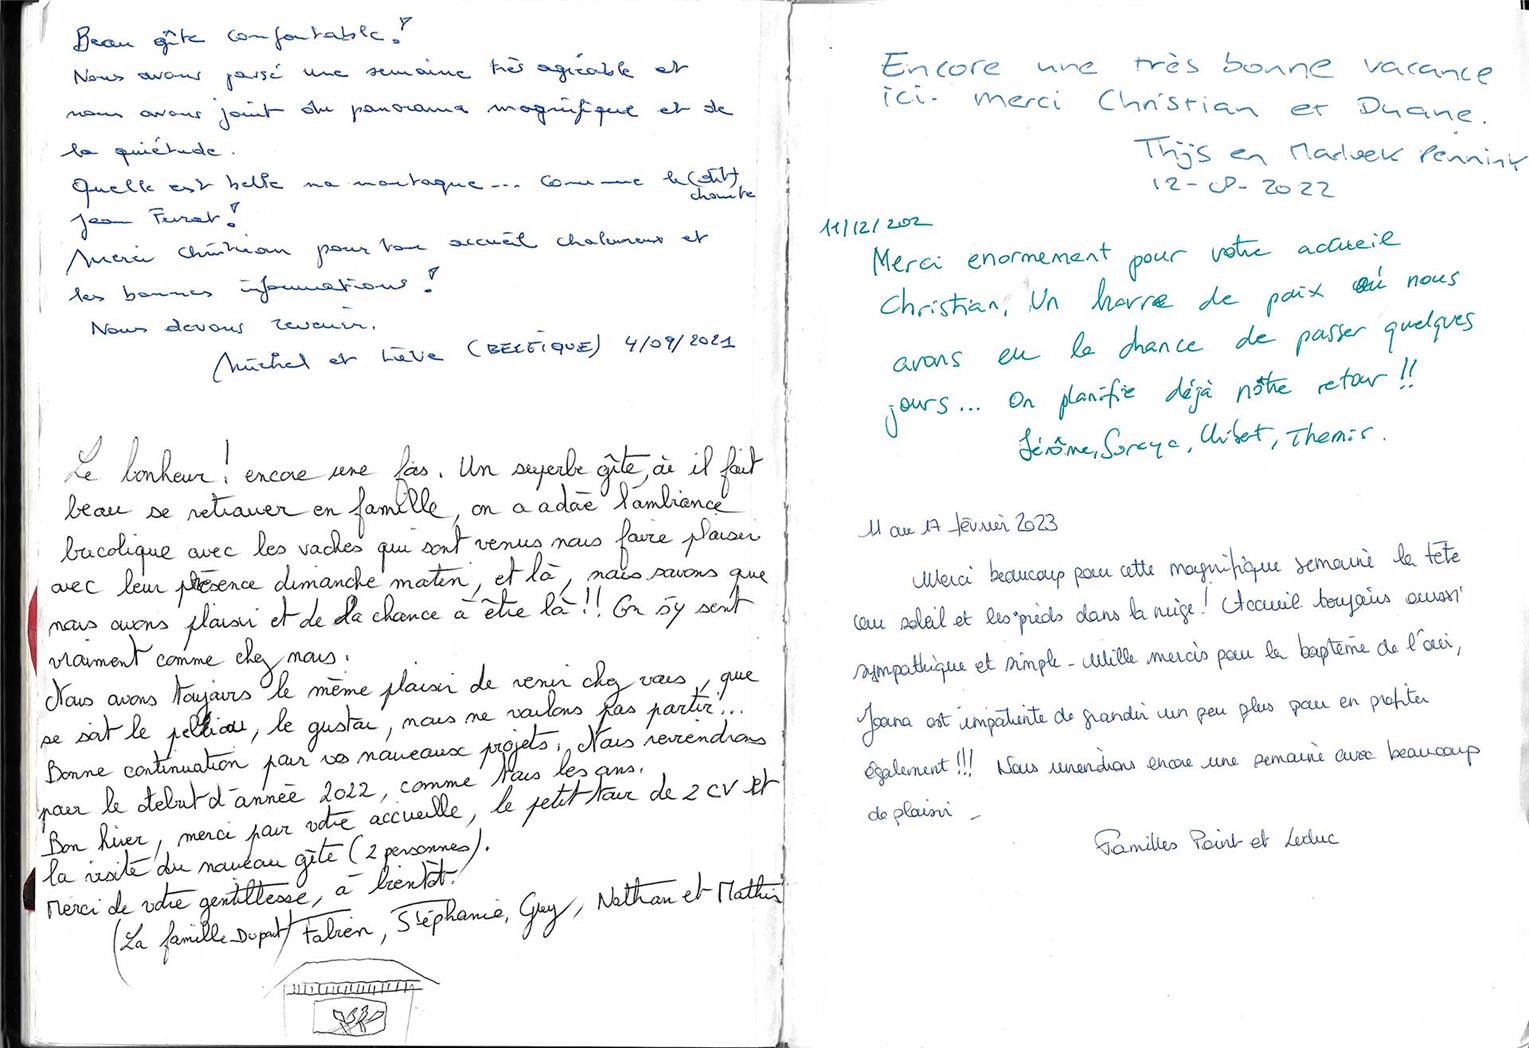 Beau gîte confortable!
Nous avons passé une semaine très agréable et
nous avons joint du panorama magnifique et de
la quiétude.
Quelle est belle ma montagne... comme le (dit)
chante
Jean Ferrat!
Merci Christian pour ton accueil chaleureux et
les bonnes informations!
Nous devons revenir.
Michel et Liève (BELGIQUE) 4/09/2021
Le bonheur! encore une fois. Un superbe gîte, où il fait
beau se retrouver en famille, on a adoré l'ambiance
bucolique avec les vaches qui sont venus nous faire plaisir
avec leur présence dimanche matin, et là, nous savons que
nous avons plaisir et de la chance à être là!! On s'y sent
vraiment comme chez nous.
Nous avons toujours le même plaisir de venir chez vous, que
se soit le pelliou, le gustou, nous ne voulons pas partir...
Bonne continuation pour vos nouveaux projets. Nous reviendrons
pour le début d'année 2022, comme tous les ans.
Bon hiver, merci pour votre accueille, le petit tour de 2 CV et
la visite du nouveau gîte (2 personnes).
Merci de votre gentillesse, à bientôt!
(La famille Dupait) Fabien, Stéphanie, Guy, Nathan et Mathis
Encore une très bonne vacance
ici. merci Christian et Duane.
Thijs en Marloek Pennink
12-08-2022
11/12/202
Merci enormement pour votre accueil
Christian. Un havre de paix où nous
avons eu la chance de passer quelques
jours... On planifie déjà nôtre retour!!
Jérôme, Soraya, Themis.
11 au 17 février 2023
Merci beaucoup pour cette magnifique semaine la tête
au soleil et les pieds dans la neige! Accueil toujours aussi
sympathique et simple - Mille mercis pour le baptême de l'air,
Joana est impatiente de grandir un peu plus pour en profiter
également!!! Nous reviendrons encore une semaine avec beaucoup
de plaisir -
Familles Point et Leduc